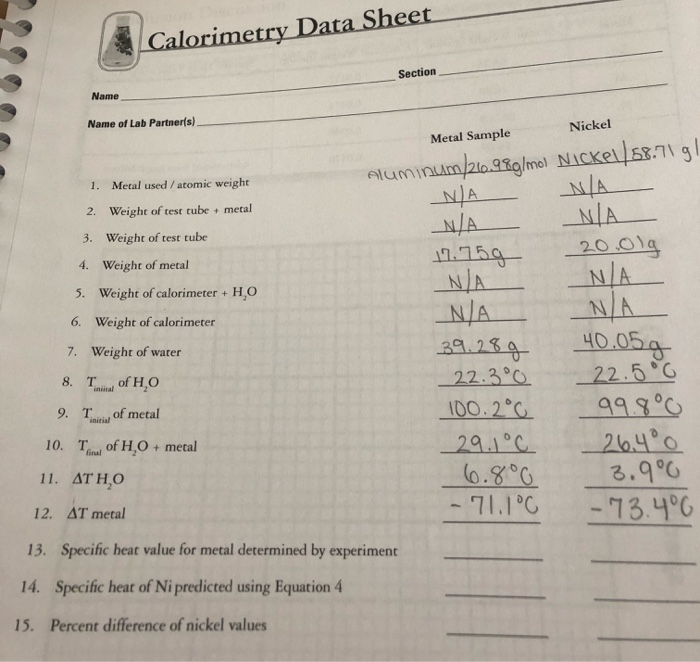 Calorimetry Data Sheet
Section
Name
Name of Lab Partner(s)
Metal Sample Nickel
1. Metal used / atomic weight Aluminum/26.98g/mol Nickel/58.71 g/
2. Weight of test tube + metal N/A N/A
3. Weight of test tube N/A N/A
4. Weight of metal 17.75g 20.01g
5. Weight of calorimeter + H₂O N/A N/A
6. Weight of calorimeter N/A N/A
7. Weight of water 39.28g 40.05g
8. Tinitial of H₂O 22.3°C 22.5°C
9. Tinitial of metal 100.2°C 99.8°C
10. Tfinal of H₂O + metal 29.1°C 26.4°C
11. ΔT H₂O 6.8°C 3.9°C
12. ΔT metal -71.1°C -73.4°C
13. Specific heat value for metal determined by experiment
14. Specific heat of Ni predicted using Equation 4
15. Percent difference of nickel values